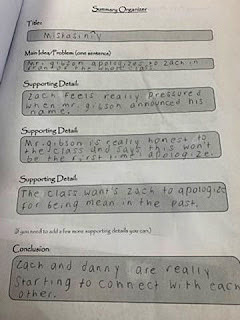 Summary Organizer
Title:
Miskasiniy
Main Idea/Problem (one sentence)
Mr. gibson apologizes to zach in
the whole class
Supporting Detail:
Zach feels really pressured
when mr. gibson announced his
name.
Supporting Detail:
Mr. gibson is really honest to
the class and says this won't
be the first time i apologize.
Supporting Detail:
The class want's zach to apologize
for being mean in the past.
(If you need to add a few more supporting details you can.)
Conclusion:
Zach and danny are really
starting to connect with each
other.